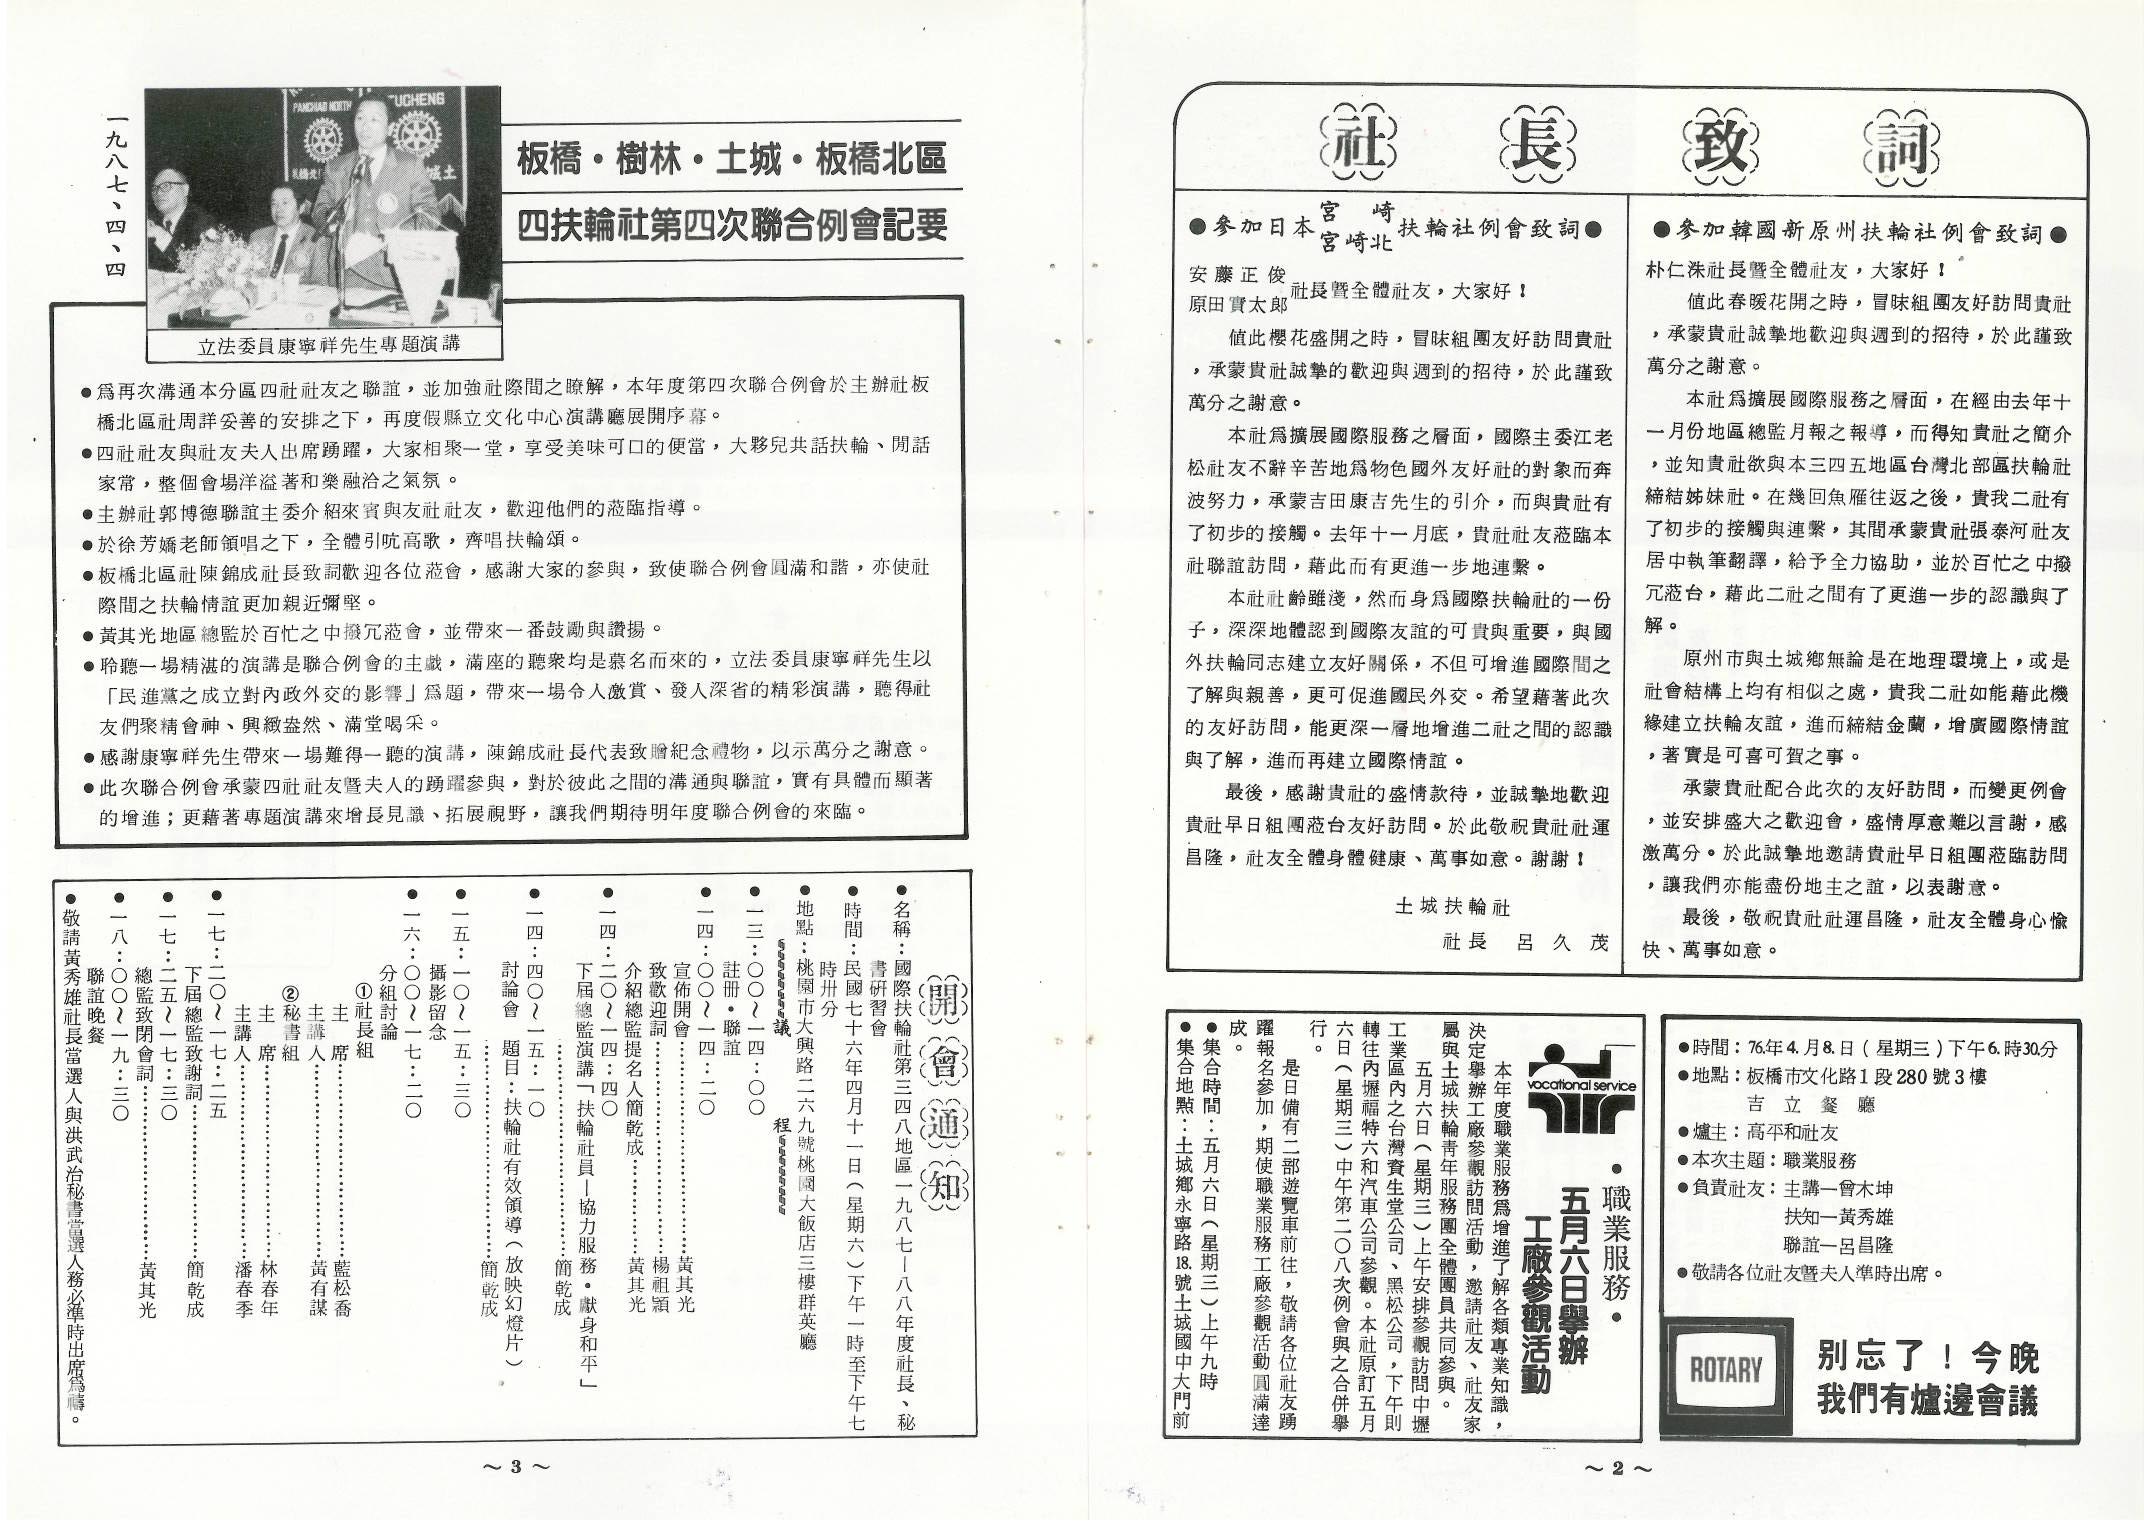 社長致詞
●參加韓國新原州扶輪社例會致詞●
朴仁洙社長暨全體社友，大家好！
值此春暖花開之時，冒昧組團友好訪問貴社
，承蒙貴社誠摯地歡迎與週到的招待，於此謹致
萬分之謝意。
本社爲擴展國際服務之層面，在經由去年十
一月份地區總監月報之報導，而得知貴社之簡介
，並知貴社欲與本三四五地區台灣北部區扶輪社
締結姊妹社。在幾回魚雁往返之後，貴我二社有
了初步的接觸與連繫，其間承蒙貴社張泰河社友
居中執筆翻譯，給予全力協助，並於百忙之中撥
冗蒞台，藉此二社之間有了更進一步的認識與了
解。
原州市與土城鄉無論是在地理環境上，或是
社會結構上均有相似之處，貴我二社如能藉此機
緣建立扶輪友誼，進而締結金蘭，增廣國際情誼
，著實是可喜可賀之事。
承蒙貴社配合此次的友好訪問，而變更例會
，並安排盛大之歡迎會，盛情厚意難以言謝，感
激萬分。於此誠摯地邀請貴社早日組團蒞臨訪問
，讓我們亦能盡份地主之誼，以表謝意。
最後，敬祝貴社社運昌隆，社友全體身心愉
快、萬事如意。
●參加日本宮崎
宮崎北扶輪社例會致詞●
安藤正俊
原田實太郎社長暨全體社友，大家好！
值此櫻花盛開之時，冒昧組團友好訪問貴社
，承蒙貴社誠摯的歡迎與週到的招待，於此謹致
萬分之謝意。
本社爲擴展國際服務之層面，國際主委江老
松社友不辭辛苦地爲物色國外友好社的對象而奔
波努力，承蒙吉田康吉先生的引介，而與貴社有
了初步的接觸。去年十一月底，貴社社友蒞臨本
社聯誼訪問，藉此而有更進一步地連繫。
本社社齡雖淺，然而身爲國際扶輪社的一份
子，深深地體認到國際友誼的可貴與重要，與國
外扶輪同志建立友好關係，不但可增進國際間之
了解與親善，更可促進國民外交。希望藉著此次
的友好訪問，能更深一層地增進二社之間的認識
與了解，進而再建立國際情誼。
最後，感謝貴社的盛情款待，並誠摯地歡迎
貴社早日組團蒞台友好訪問。於此敬祝貴社社運
昌隆，社友全體身體健康、萬事如意。謝謝！
土城扶輪社
社長 呂久茂
●時間：76.年4.月8.日(星期三)下午6.時30.分
●地點：板橋市文化路1段280號3樓
吉立餐廳
●爐主：高平和社友
●本次主題：職業服務
●負責社友：主講—曾木坤
扶知—黃秀雄
聯誼—呂昌隆
●敬請各位社友暨夫人準時出席。
ROTARY
別忘了！今晚
我們有爐邊會議
vocational service
・職業服務・
五月六日舉辦
工廠參觀活動
本年度職業服務爲增進了解各類專業知識，
決定舉辦工廠參觀訪問活動，邀請社友、社友家
屬與土城扶輪青年服務團全體團員共同參與。
五月六日(星期三)上午安排參觀訪問中壢
工業區內之台灣資生堂公司、黑松公司，下午則
轉往內壢福特六和汽車公司參觀。本社原訂五月
六日(星期三)中午第二〇八次例會與之合併舉
行。
是日備有二部遊覽車前往，敬請各位社友踴
躍報名參加，期使職業服務工廠參觀活動圓滿達
成。
●集合時間：五月六日(星期三)上午九時
●集合地點：土城鄉永寧路18.號土城國中大門前
～2～
一九八七、四、四
PANCHIAO NORTH
TUCHENG
立法委員康寧祥先生專題演講
板橋・樹林・土城・板橋北區
四扶輪社第四次聯合例會記要
●爲再次溝通本分區四社社友之聯誼，並加強社際間之瞭解，本年度第四次聯合例會於主辦社板
橋北區社周詳妥善的安排之下，再度假縣立文化中心演講廳展開序幕。
●四社社友與社友夫人出席踴躍，大家相聚一堂，享受美味可口的便當，大夥兒共話扶輪、閒話
家常，整個會場洋溢著和樂融洽之氣氛。
●主辦社郭博德聯誼主委介紹來賓與友社社友，歡迎他們的蒞臨指導。
●於徐芳嬌老師領唱之下，全體引吭高歌，齊唱扶輪頌。
●板橋北區社陳錦成社長致詞歡迎各位蒞會，感謝大家的參與，致使聯合例會圓滿和諧，亦使社
際間之扶輪情誼更加親近彌堅。
●黃其光地區總監於百忙之中撥冗蒞會，並帶來一番鼓勵與讚揚。
●聆聽一場精湛的演講是聯合例會的主戲，滿座的聽衆均是慕名而來的，立法委員康寧祥先生以
「民進黨之成立對內政外交的影響」爲題，帶來一場令人激賞、發人深省的精彩演講，聽得社
友們聚精會神、興緻盎然、滿堂喝采。
●感謝康寧祥先生帶來一場難得一聽的演講，陳錦成社長代表致贈紀念禮物，以示萬分之謝意。
●此次聯合例會承蒙四社社友暨夫人的踴躍參與，對於彼此之間的溝通與聯誼，實有具體而顯著
的增進；更藉著專題演講來增長見識、拓展視野，讓我們期待明年度聯合例會的來臨。
開會通知
●名稱：國際扶輪社第三四八地區一九八七—八八年度社長、秘
書研習會
●時間：民國七十六年四月十一日(星期六)下午一時至下午七
時卅分
●地點：桃園市大興路二六九號桃園大飯店三樓群英廳
議程
●一三：〇〇～一四：〇〇
註册・聯誼
●一四：〇〇～一四：二〇
宣佈開會……黃其光
致歡迎詞……楊祖穎
介紹總監提名人簡乾成……黃其光
●一四：二〇～一四：四〇
下屆總監演講「扶輪社員—協力服務・獻身和平」
……簡乾成
●一四：四〇～一五：一〇
討論會 題目：扶輪社有效領導(放映幻燈片)
……簡乾成
●一五：一〇～一五：三〇
攝影留念
●一六：〇〇～一七：二〇
分組討論
①社長組
主席……藍松喬
主講人……黃有謀
②秘書組
主席……林春年
主講人……潘春季
●一七：二〇～一七：二五
下屆總監致謝詞……簡乾成
●一七：二五～一七：三〇
總監致閉會詞……黃其光
●一八：〇〇～一九：三〇
聯誼晚餐
●敬請黃秀雄社長當選人與洪武治秘書當選人務必準時出席爲禱。
～3～